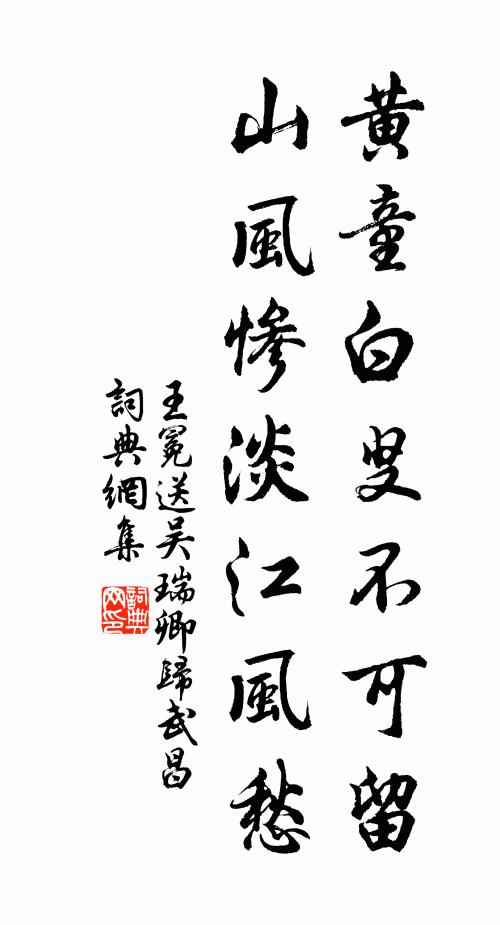 黄童白叟不可留
山風慘淡江風愁
王冕送吴瑞卿歸武昌
詞典網集
詞典网印